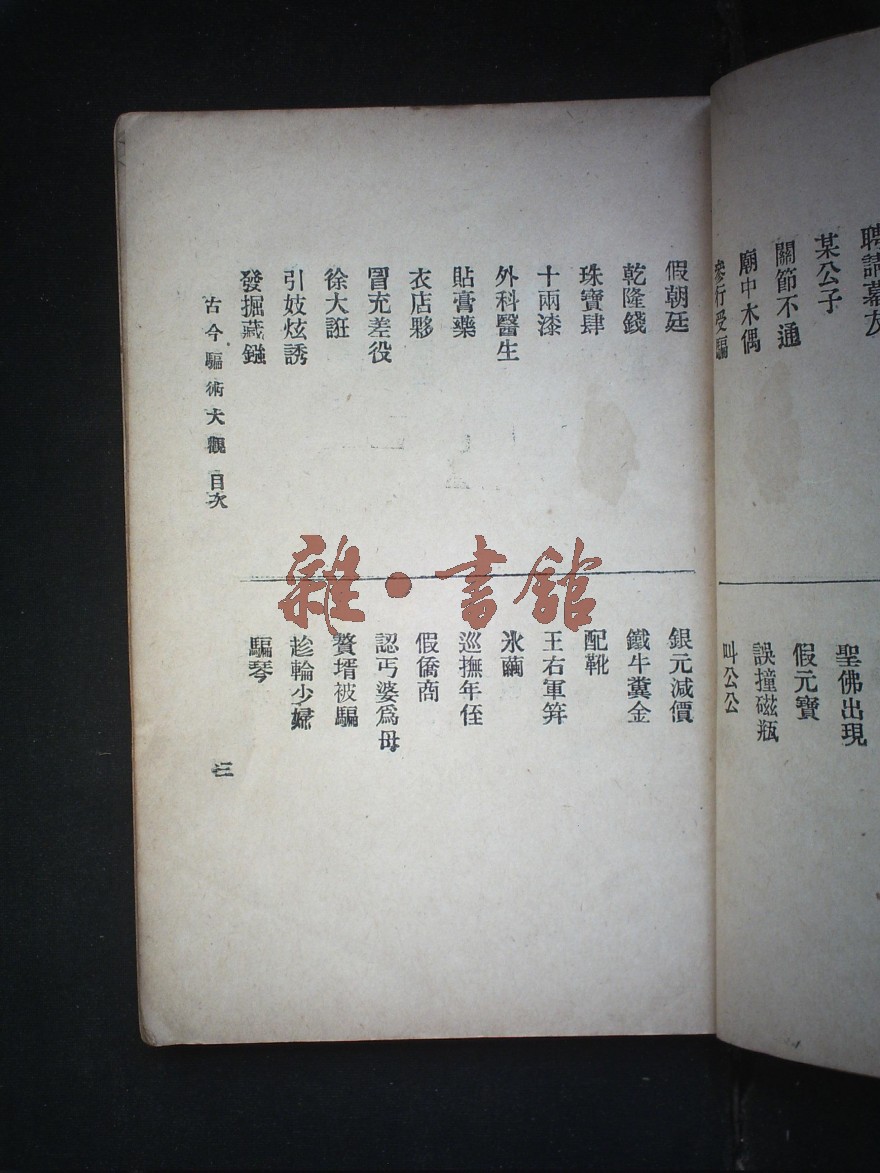 聘請幕友
某公子
關節不通
廟中木偶
參行受騙
聖佛出現
假元寶
誤撞磁瓶
叫公公
假朝廷
乾隆錢
珠寶肆
十兩漆
外科醫生
貼膏藥
衣店夥
冒充差役
徐大誑
引妓炫誘
發掘藏鏹
銀元減價
鐵牛糞金
配靴
王右軍筭
氷繭
巡撫年侄
假僑商
認丐婆爲母
贅壻被騙
趁輪少婦
騙琴
古今騙術大觀 目次
三
雜·書館